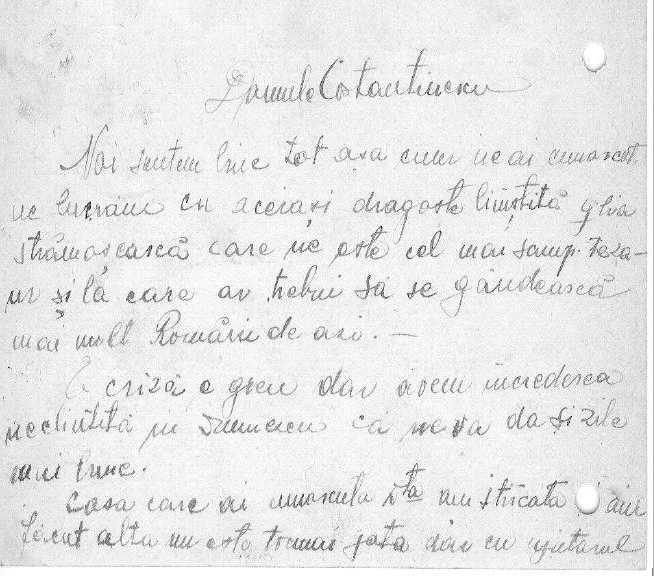 Domnule Costantinescu
Noi sentem bine tot asa cum ne ai cunoscot
ne lucrăm cu aceiasi dragoste linistită glia
strămosească care ne este cel mai scump teza-
ur si la care ar trebui să se gândească
mai mult Românii de azi. —
E criză e greu dar avem increderea
neclintită in Dumnezeu că ne va da și zile
mai bune.
Casa care ai cunoscuto am stricato și am
făcut alta nu este tocmai gata dar cu ajutorul